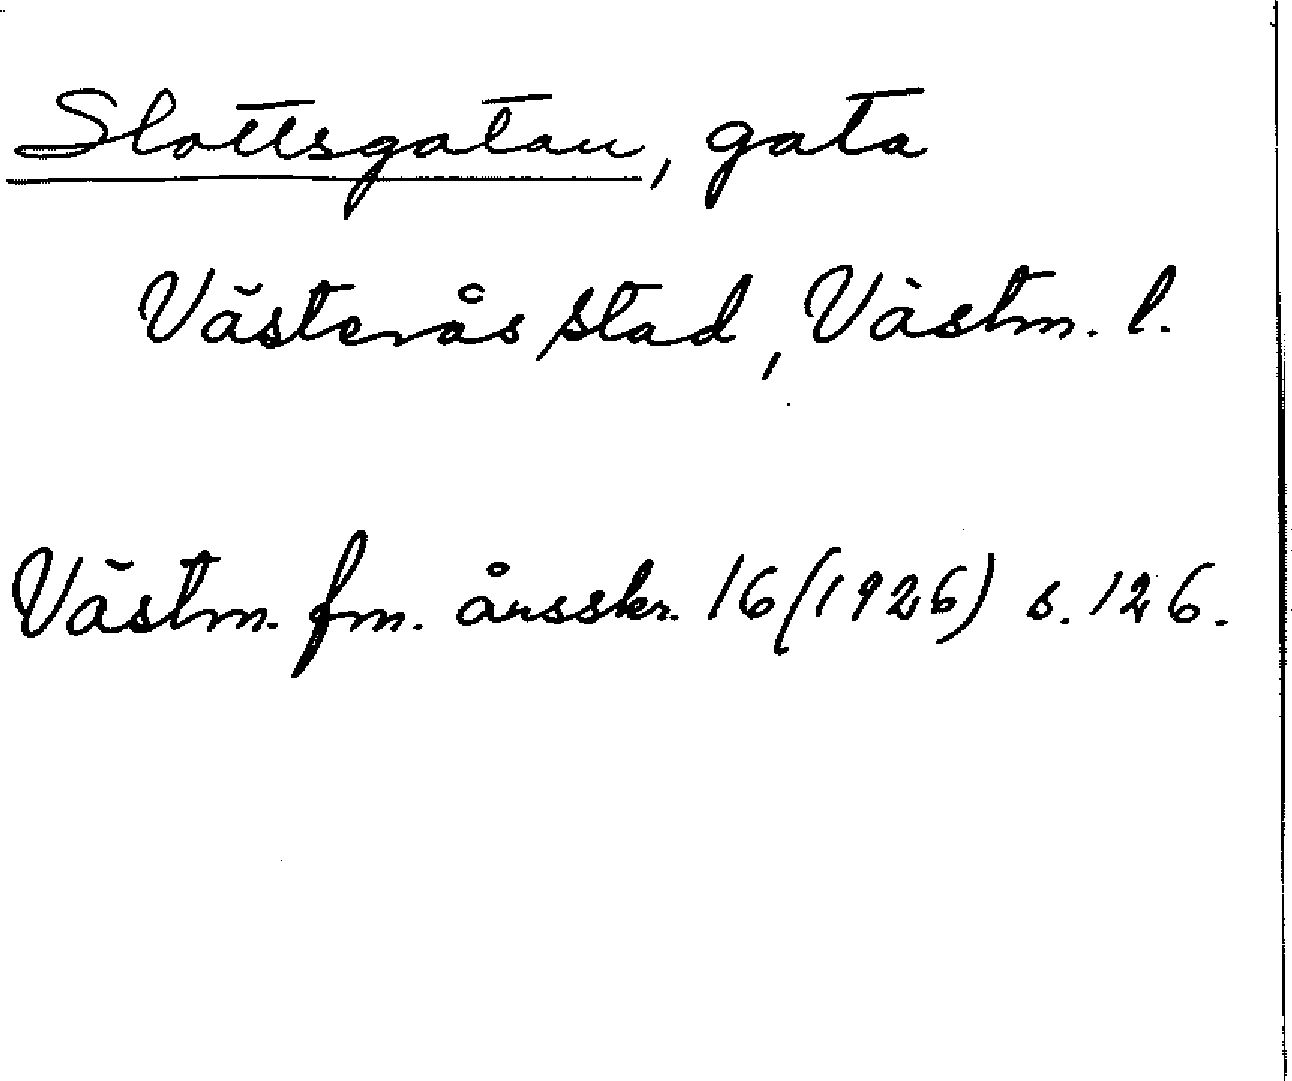 Slottsgatan, gata
Västerås stad, Västm. l.
Västm. fm. årsskr. 16 (1926) s. 126.